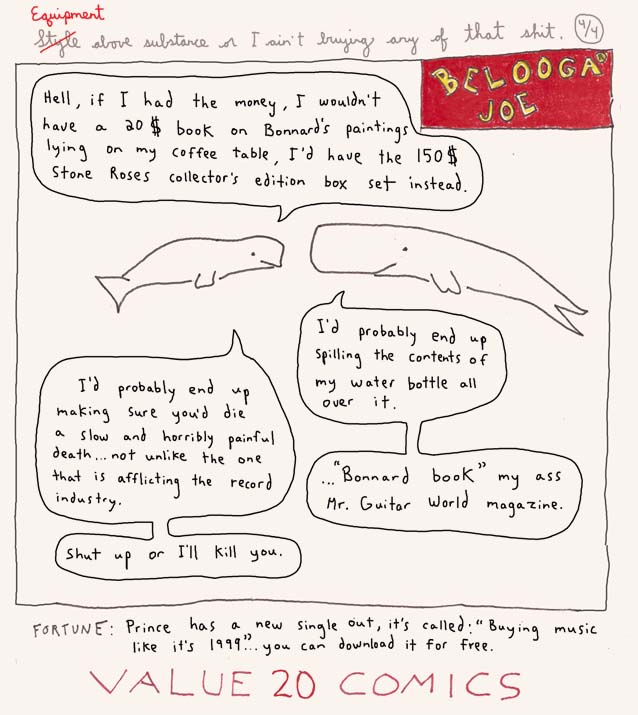 Equipment
Style above substance or I ain't buying any of that shit. 4/4
BELOOGA
JOE
Hell, if I had the money, I wouldn't
have a 20$ book on Bonnard's paintings
lying on my coffee table, I'd have the 150$
Stone Roses collector's edition box set instead.
I'd probably end up
spilling the contents of
my water bottle all
over it.
..."Bonnard book" my ass
Mr. Guitar World magazine.
I'd probably end up
making sure you'd die
a slow and horribly painful
death... not unlike the one
that is afflicting the record
industry.
Shut up or I'll kill you.
FORTUNE: Prince has a new single out, it's called: "Buying music
like it's 1999"... you can download it for free.
VALUE 20 COMICS